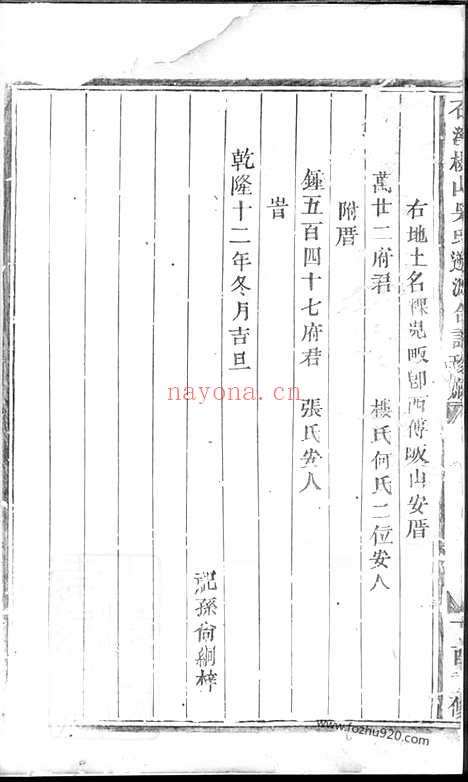 右地土名裸児畈卽西傅山安厝
萬廿二府君　樓氏何氏二位安人
附厝
鍾五百四十七府君　張氏安人
旹
乾隆十二年冬月吉旦
孫尙綱梓
nayona.cn
www.fozhu920.com